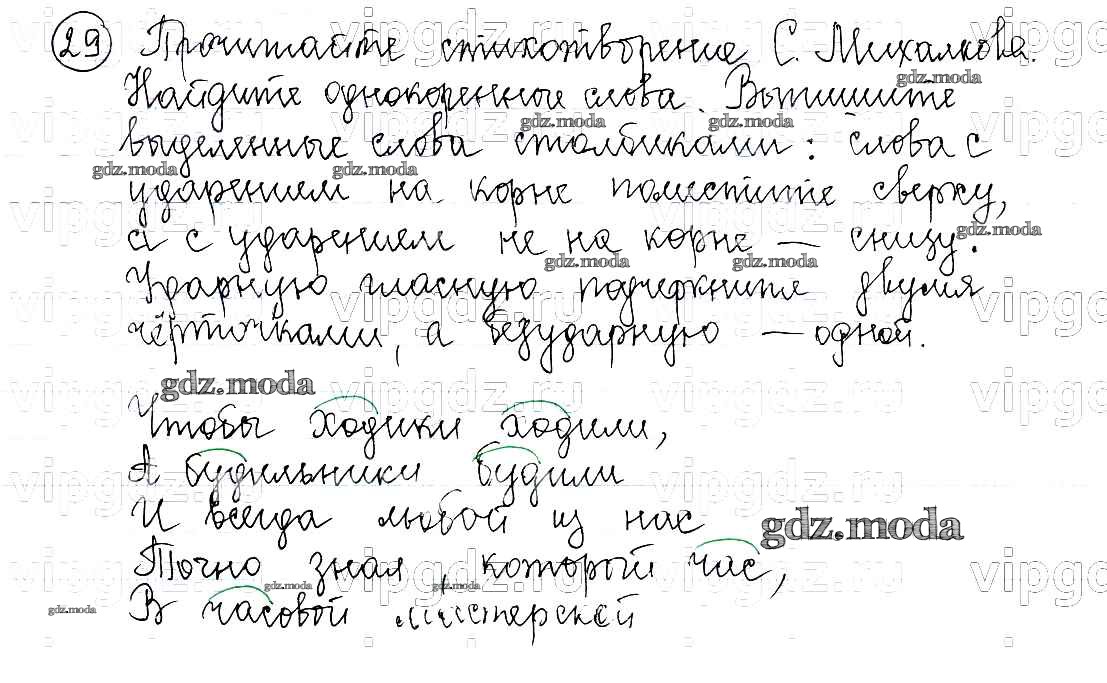 29 Прочитайте стихотворение С. Михалкова.
Найдите однокоренные слова. Выпишите
выделенные слова столбиками: слова с
ударением на корне поместите сверху,
а с ударением не на корне — снизу.
Ударную гласную подчеркните двумя
чёрточками, а безударную — одной.
gdz.moda
Чтобы ходики ходили,
А будильники будили
И всегда любой из нас
gdz.moda
Точно знал, который час,
В часовой мастерской